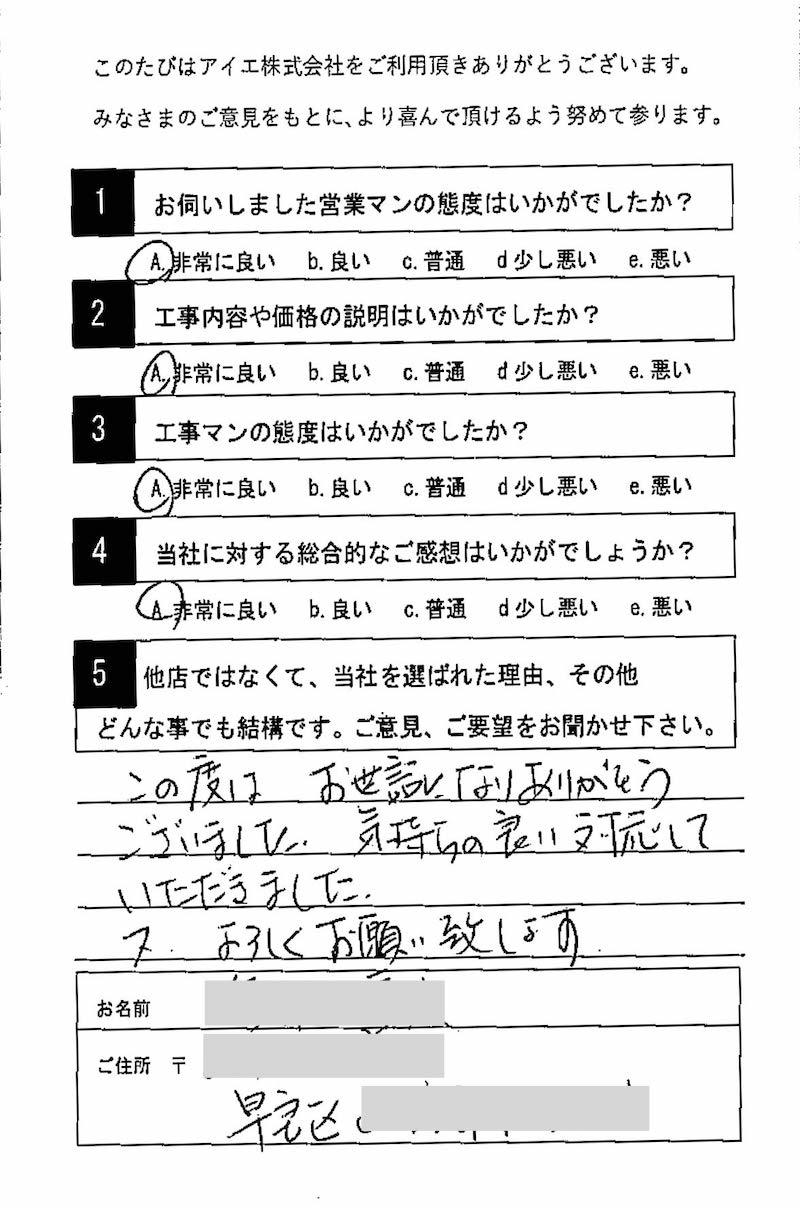 このたびはアイエ株式会社をご利用頂きありがとうございます。
みなさまのご意見をもとに、より喜んで頂けるよう努めて参ります。
1 お伺いしました営業マンの態度はいかがでしたか？
A.非常に良い b.良い c.普通 d少し悪い e.悪い
2 工事内容や価格の説明はいかがでしたか？
A.非常に良い b.良い c.普通 d少し悪い e.悪い
3 工事マンの態度はいかがでしたか？
A.非常に良い b.良い c.普通 d少し悪い e.悪い
4 当社に対する総合的なご感想はいかがでしょうか？
A.非常に良い b.良い c.普通 d少し悪い e.悪い
5 他店ではなくて、当社を選ばれた理由、その他
どんな事でも結構です。ご意見、ご要望をお聞かせ下さい。
この度は お世話になりありがとう
ございました. 気持ちの良い対応して
いただきました.
又. よろしくお願い致します.
お名前
ご住所 〒
早良区